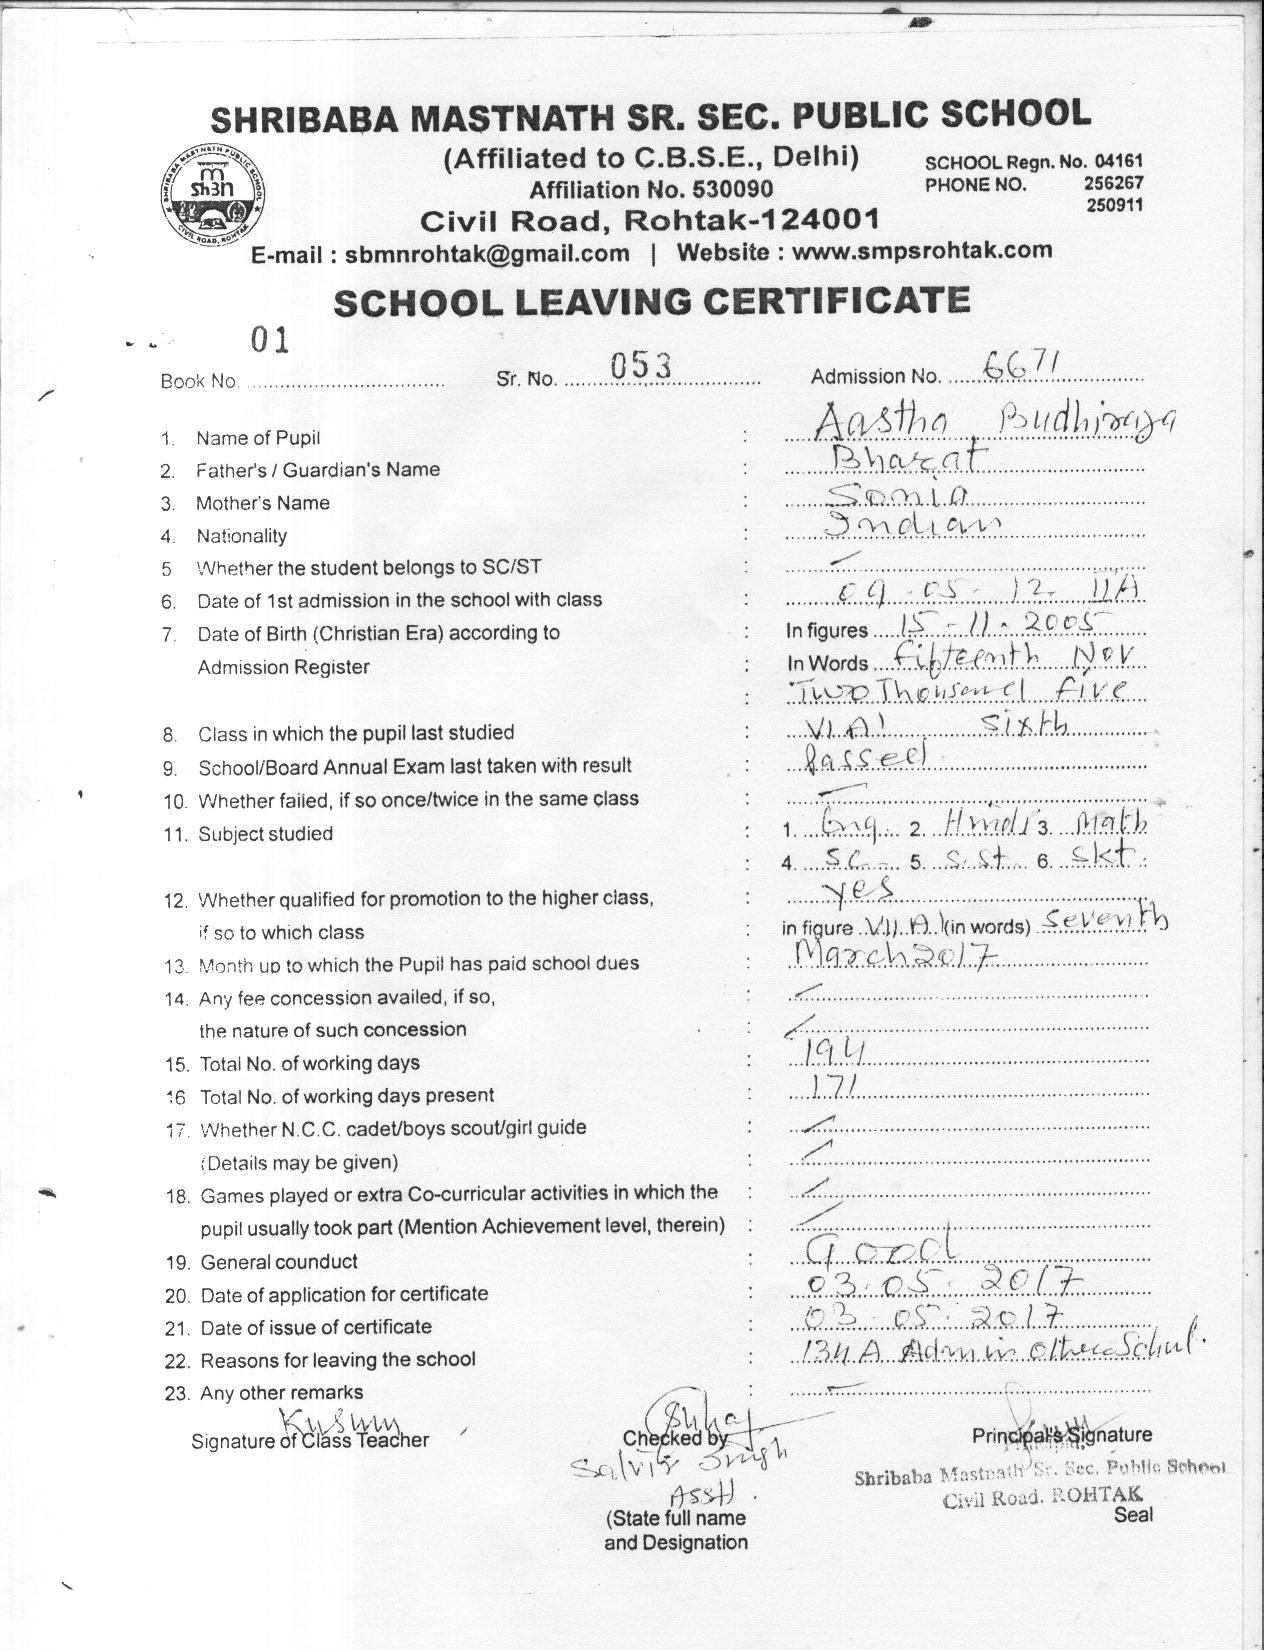 SHRIBABA MASTNATH SR. SEC. PUBLIC SCHOOL
(Affiliated to C.B.S.E., Delhi)
SCHOOL Regn. No. 04161
Affiliation No. 530090
PHONE NO. 256267
250911
SHRIBABA MASTNATH PUBLIC SCHOOL
CIVIL ROAD, ROHTAK
Civil Road, Rohtak-124001
E-mail : sbmnrohtak@gmail.com | Website : www.smpsrohtak.com
SCHOOL LEAVING CERTIFICATE
Book No. 01 Sr. No. 053 Admission No. 6671
1. Name of Pupil : Aastha Budhiraja
2. Father's / Guardian's Name : Bharat
3. Mother's Name : Sonia
4. Nationality : Indian
5 Whether the student belongs to SC/ST : –
6. Date of 1st admission in the school with class : 09-05-12 IIA
7. Date of Birth (Christian Era) according to : In figures 15-11-2005
Admission Register : In Words Fifteenth Nov
: Two Thousand Five
8. Class in which the pupil last studied : VI A1 Sixth
9. School/Board Annual Exam last taken with result : Passed
10. Whether failed, if so once/twice in the same class : –
11. Subject studied : 1. Eng. 2. Hindi 3. Math
: 4. SC 5. S.St. 6. Skt.
12. Whether qualified for promotion to the higher class, : yes
if so to which class : in figure VII A1 (in words) Seventh
13. Month up to which the Pupil has paid school dues : March 2017
14. Any fee concession availed, if so, : –
the nature of such concession : –
15. Total No. of working days : 194
16 Total No. of working days present : 171
17. Whether N.C.C. cadet/boys scout/girl guide : –
(Details may be given) : –
18. Games played or extra Co-curricular activities in which the : –
pupil usually took part (Mention Achievement level, therein) : –
19. General counduct : Good
20. Date of application for certificate : 03.05.2017
21. Date of issue of certificate : 03.05.2017
22. Reasons for leaving the school : 134 A Admn in other School.
23. Any other remarks –
Kusum
Signature of Class Teacher Checked by Principal's Signature
Singh
Asstt.
Shribaba Mastnath Sr. Sec. Public School
Civil Road, ROHTAK
(State full name Seal
and Designation